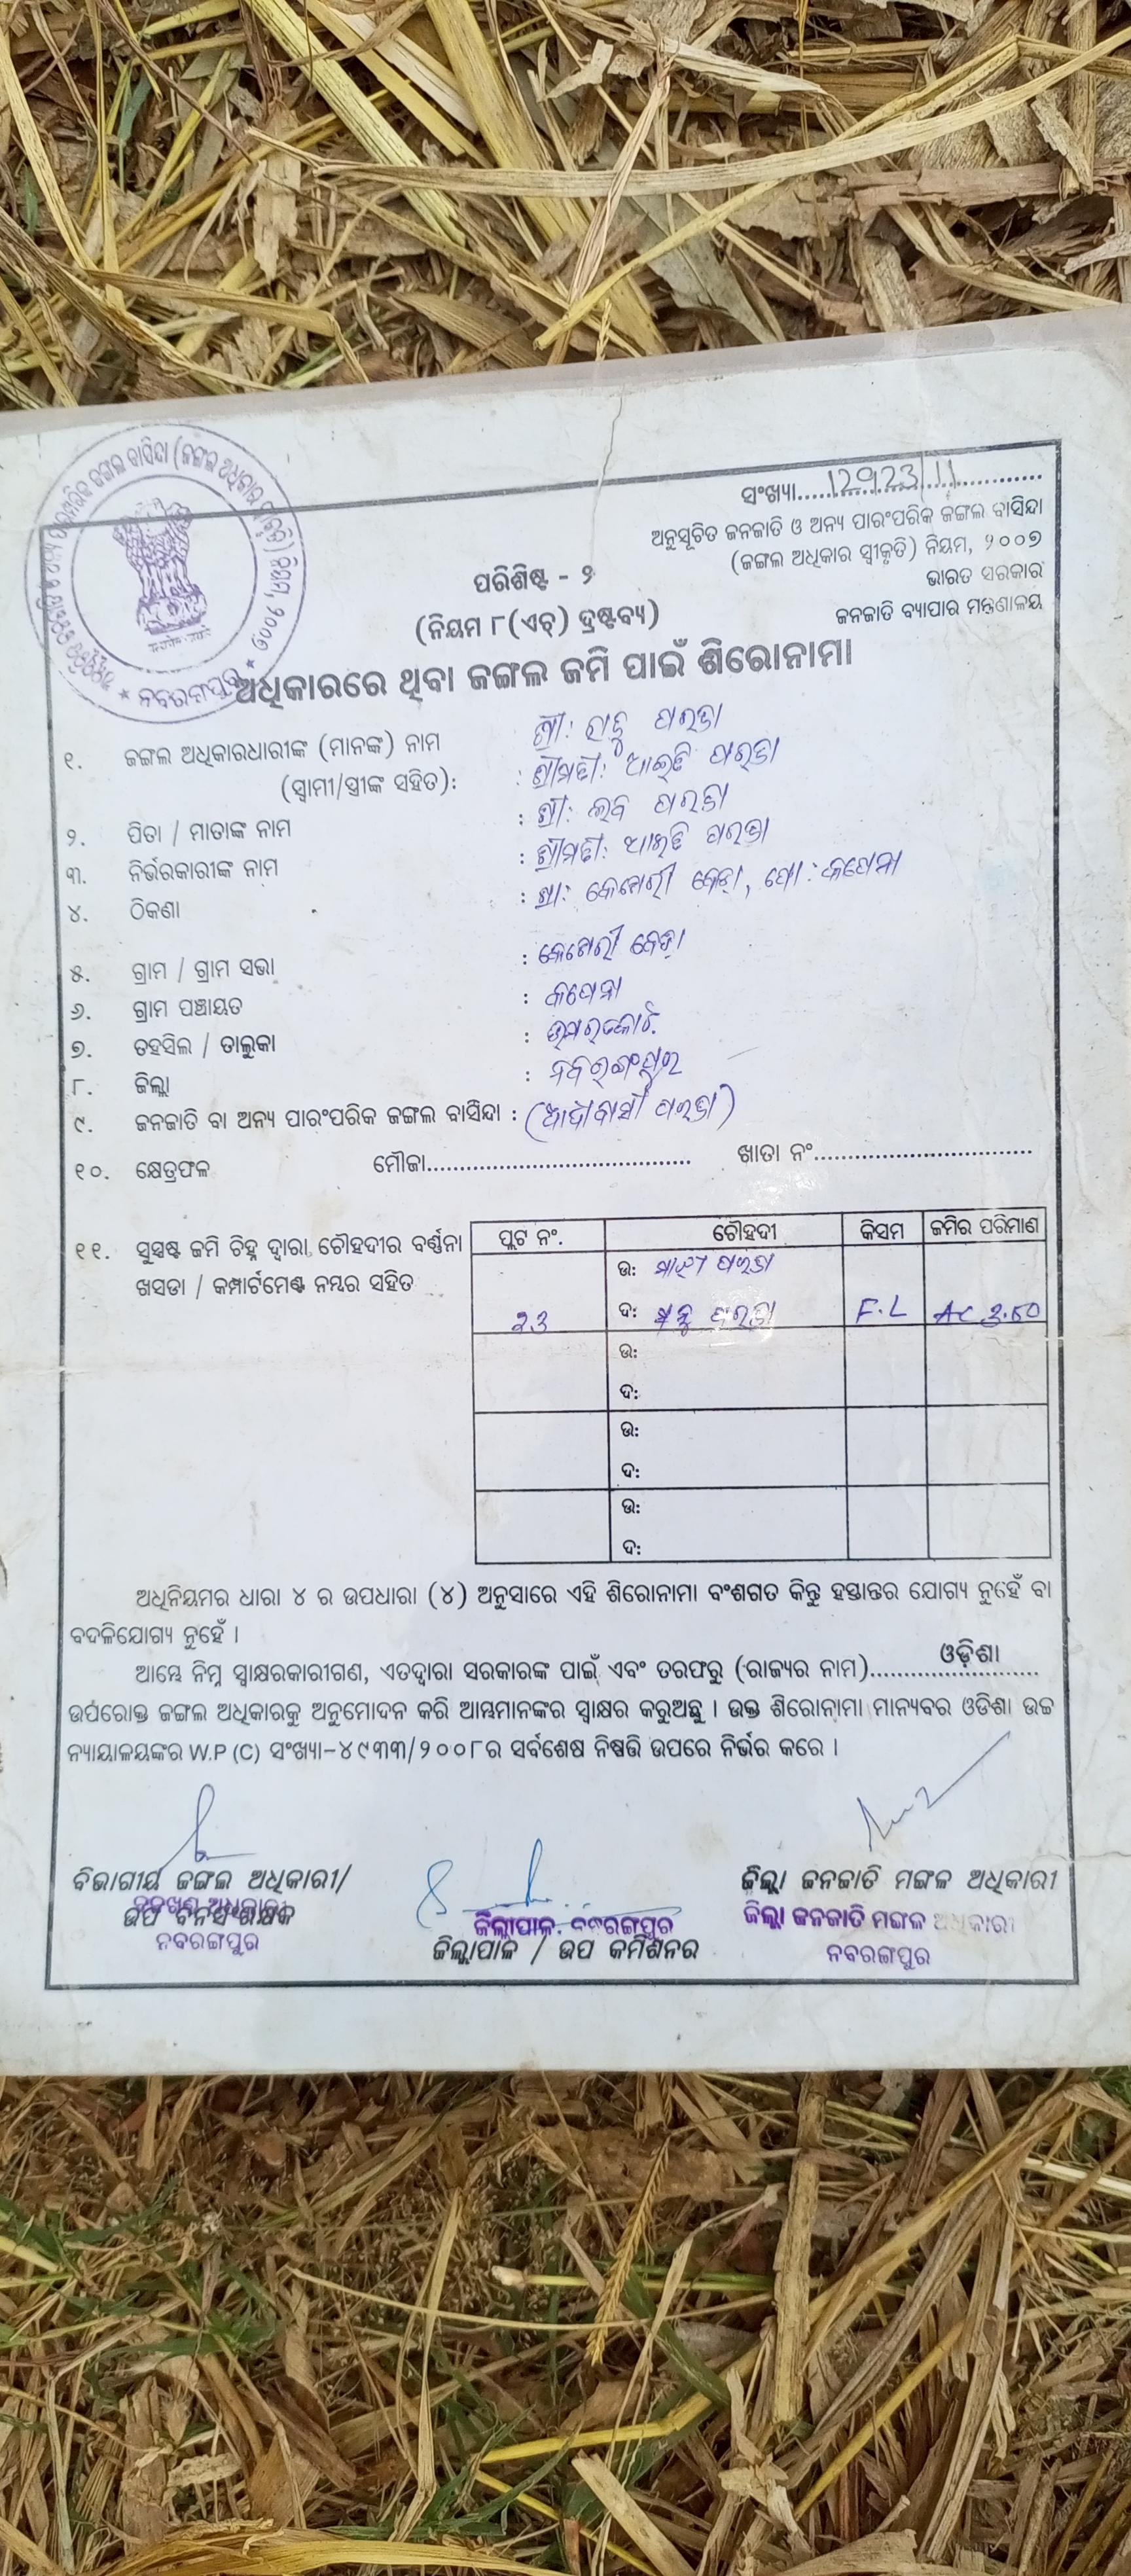 ସଂଖ୍ୟା..... 12923/11 .....
ଅନୁସୂଚିତ ଜନଜାତି ଓ ଅନ୍ୟ ପାରଂପରିକ ଜଙ୍ଗଲ ବାସିନ୍ଦା
(ଜଙ୍ଗଲ ଅଧିକାର ସ୍ଵୀକୃତି) ନିୟମ, ୨୦୦୭
ଭାରତ ସରକାର
ଜନଜାତି ବ୍ୟାପାର ମନ୍ତ୍ରଣାଳୟ
ପରିଶିଷ୍ଟ - ୨
(ନିୟମ ୮(ଏଚ୍) ଦ୍ରଷ୍ଟବ୍ୟ)
ଅଧିକାରରେ ଥିବା ଜଙ୍ଗଲ ଜମି ପାଇଁ ଶିରୋନାମା
ନବରଙ୍ଗପୁର
୧. ଜଙ୍ଗଲ ଅଧିକାରଧାରୀଙ୍କ (ମାନଙ୍କ) ନାମ ଶ୍ରୀ: ପରଜା
(ସ୍ଵାମୀ/ସ୍ତ୍ରୀଙ୍କ ସହିତ): : ଶ୍ରୀମତୀ: ପରଜା
୨. ପିତା / ମାତାଙ୍କ ନାମ : ଶ୍ରୀ: ଲବ ପରଜା
୩. ନିର୍ଭରକାରୀଙ୍କ ନାମ : ଶ୍ରୀମତୀ: ପରଜା
୪. ଠିକଣା :
୫. ଗ୍ରାମ / ଗ୍ରାମ ସଭା :
୬. ଗ୍ରାମ ପଞ୍ଚାୟତ :
୭. ତହସିଲ / ତାଲୁକା : ଉମରକୋଟ
୮. ଜିଲ୍ଲା : ନବରଙ୍ଗପୁର
୯. ଜନଜାତି ବା ଅନ୍ୟ ପାରଂପରିକ ଜଙ୍ଗଲ ବାସିନ୍ଦା : (ଆଦୀବାସୀ ପରଜା)
୧୦. କ୍ଷେତ୍ରଫଳ ମୌଜା..... ଖାତା ନଂ.....
୧୧. ସୁସ୍ପଷ୍ଟ ଜମି ଚିହ୍ନ ଦ୍ଵାରା ଚୌହଦୀର ବର୍ଣ୍ଣନା
ଖସଡା / କମ୍ପାର୍ଟମେଣ୍ଟ ନମ୍ବର ସହିତ
ପ୍ଲଟ ନଂ. ଚୌହଦୀ କିସମ ଜମିର ପରିମାଣ
ଉ: ପରଜା
23 ଦ: ପରଜା F.L AC 3.50
ଉ:
ଦ:
ଉ:
ଦ:
ଉ:
ଦ:
ଅଧିନିୟମର ଧାରା ୪ ର ଉପଧାରା (୪) ଅନୁସାରେ ଏହି ଶିରୋନାମା ବଂଶଗତ କିନ୍ତୁ ହସ୍ତାନ୍ତର ଯୋଗ୍ୟ ନୁହେଁ ବା
ବଦଳିଯୋଗ୍ୟ ନୁହେଁ ।
ଆମ୍ଭେ ନିମ୍ନ ସ୍ଵାକ୍ଷରକାରୀଗଣ, ଏତଦ୍ଵାରା ସରକାରଙ୍କ ପାଇଁ ଏବଂ ତରଫରୁ (ରାଜ୍ୟର ନାମ)..... ଓଡ଼ିଶା .....
ଉପରୋକ୍ତ ଜଙ୍ଗଲ ଅଧିକାରକୁ ଅନୁମୋଦନ କରି ଆମ୍ଭମାନଙ୍କର ସ୍ଵାକ୍ଷର କରୁଅଛୁ । ଉକ୍ତ ଶିରୋନାମା ମାନ୍ୟବର ଓଡିଶା ଉଚ୍ଚ
ନ୍ୟାୟାଳୟଙ୍କର W.P (C) ସଂଖ୍ୟା-୪୯୩୩/୨୦୦୮ର ସର୍ବଶେଷ ନିଷ୍ପତ୍ତି ଉପରେ ନିର୍ଭର କରେ ।
ବିଭାଗୀୟ ଜଙ୍ଗଲ ଅଧିକାରୀ/
ଉପ ବନସଂରକ୍ଷକ
ନବରଙ୍ଗପୁର
ଜିଲ୍ଲାପାଳ. ନବରଙ୍ଗପୁର
ଜିଲ୍ଲାପାଳ / ଉପ କମିଶନର
ଜିଲ୍ଲା ଜନଜାତି ମଙ୍ଗଳ ଅଧିକାରୀ
ଜିଲ୍ଲା ଜନଜାତି ମଙ୍ଗଳ ଅଧିକାରୀ
ନବରଙ୍ଗପୁର